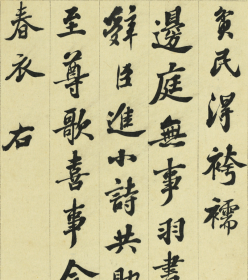 貧民得袴襦
邊庭無事羽書
辭臣進小詩共助
至尊歌喜事今
春衣 右